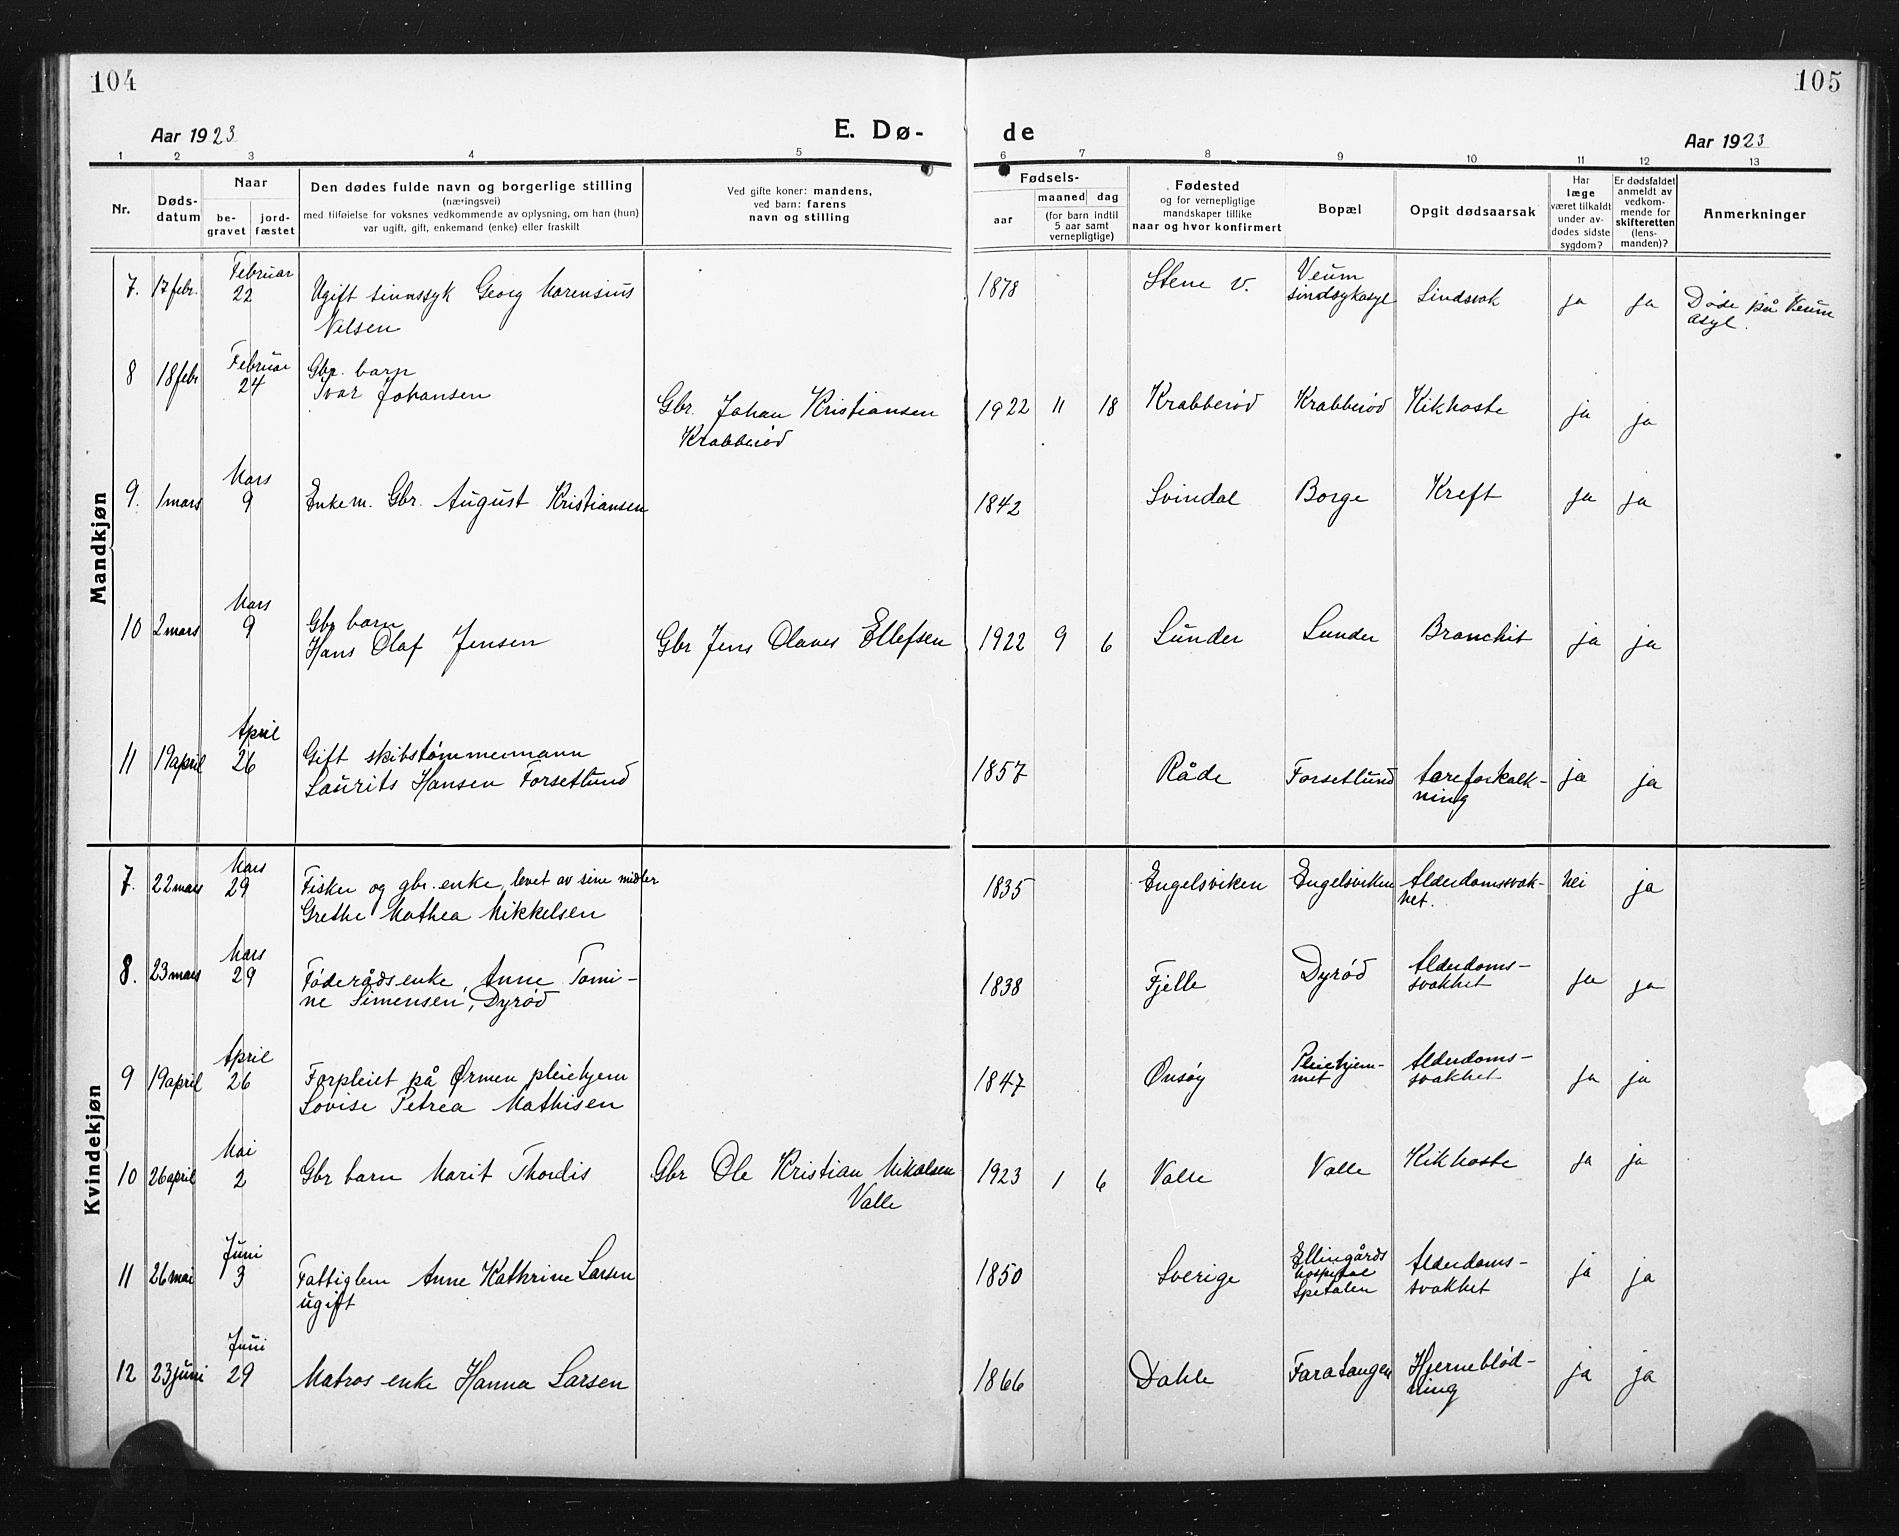 104
105
Aar 1923
E. Dø-
de
Aar 1923
1 2 3 4 5 6 7 8 9 10 11 12 13
Nr.
Døds-
datum
Naar
be-
gravet
jord-
fæstet
Den dødes fulde navn og borgerlige stilling
(næringsvei)
med tilføielse for voksnes vedkommende av oplysning, om han (hun)
var ugift, gift, enkemand (enke) eller fraskilt
Ved gifte koner: mandens,
ved barn: farens
navn og stilling
Fødsels-
aar
maaned dag
(for barn indtil
5 aar samt
vernepligtige)
Fødested
og for vernepligtige
mandskaper tillike
naar og hvor konfirmert
Bopæl
Opgit dødsaarsak
Har
læge
været tilkaldt
under av-
dødes sidste
sygdom?
Er dødsfaldet
anmeldt av
vedkom-
mende for
skifteretten
(lens-
manden)?
Anmerkninger
Mandkjøn
7. 17 febr. Februar 22
Ugift sinnssyk Georg Marensius
Nilsen
1878 Stene v. Veum
sindsykasyl Sindsvak ja ja Døde på Veum
asyl.
8 18 febr Februar 24
Gbr. barn
Ivar Johansen
Gbr. Johan Kristiansen
Krabberød
1922 11 18 Krabberød Krabberød Kikhoste ja ja
9. 1 mars Mars 9
Enkem. Gbr. August Kristiansen
1842 Svindal Borge Kreft ja ja
10 2 mars Mars 9
Gbr barn
Hans Olaf Jensen
Gbr Jens Olaves Ellefsen
1922 9 6 Lunder Lunder Bronchit ja ja
11 19 april April 26
Gift skibstømmermann
Laurits Hansen Forsetlund
1857 Råde Forsetlund åreforkalk-
ning ja ja
Kvindekjøn
7. 22 mars Mars 29
Fisker og gbr. enke, levet av sine midler
Grethe Mathea Mikkelsen
1835 Engelsviken Engelsviken Alderdomssvak-
het. nei ja
8. 23 mars Mars 29
Føderådsenke, Anne Tomi-
ne Simensen, Dyrød
1838 Fjelle Dyrød Alderdoms-
svakhet ja ja
9 19 april April 26
Forpleiet på Ørmen pleiehjem
Lovise Petrea Mathisen
1847 Onsøy Pleiehjem-
met Alderdoms-
svakhet ja ja
10 26 april Mai 2
Gbr barn Marit Thordis
Gbr Ole Kristian Nikolsen
Valle
1923 1 6 Valle Valle Kikhoste ja ja
11 26 mai Juni 3
Fattiglem Anne Kathrine Larsen
ugift
1850 Sverige Ellingårds
hospital
Spetalen Alderdoms-
svakhet ja ja
12 23 juni Juni 29
Matros enke Hanna Larsen
1866 Dahle Faratangen Hjerneblød-
ning ja ja